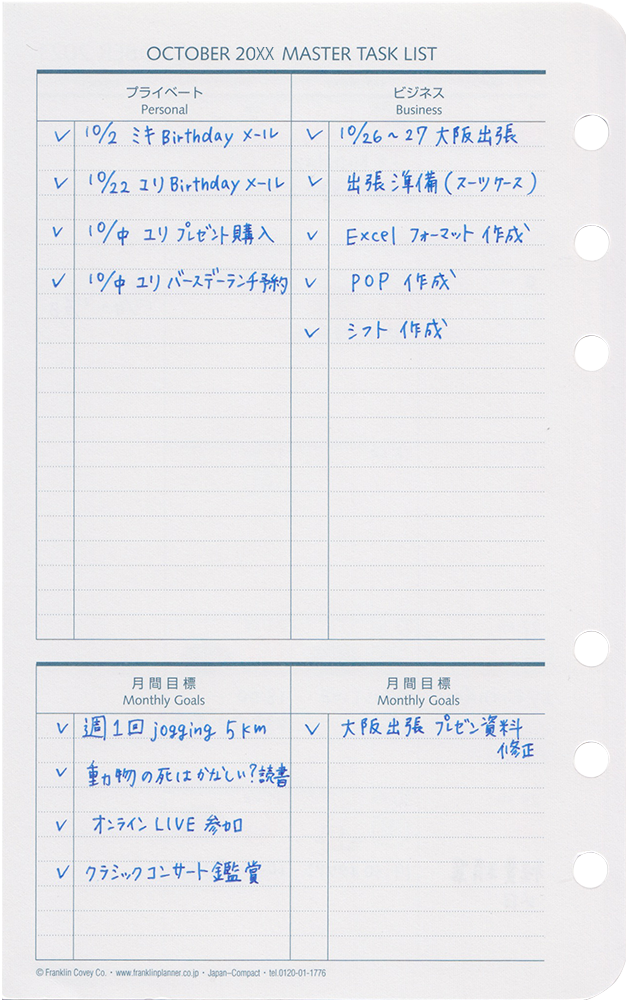 OCTOBER 20XX MASTER TASK LIST
プライベート
Personal
✓ 10/2 ミキ Birthday メール
✓ 10/22 ユリ Birthday メール
✓ 10/中 ユリ プレゼント購入
✓ 10/中 ユリ バースデーランチ予約
ビジネス
Business
✓ 10/26〜27 大阪出張
✓ 出張準備(スーツケース)
✓ Excel フォーマット作成
✓ POP 作成
✓ シフト 作成
月間目標
Monthly Goals
✓ 週1回 jogging 5km
✓ 動物の死はかなしい?読書
✓ オンライン LIVE 参加
✓ クラシックコンサート鑑賞
月間目標
Monthly Goals
✓ 大阪出張 プレゼン資料
修正
© Franklin Covey Co. • www.franklinplanner.co.jp • Japan–Compact • tel.0120-01-1776